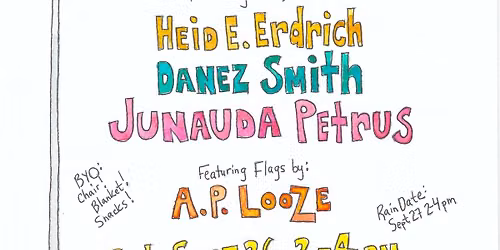 HEID E. Erdrich
DANEZ Smith
JUNAUDA PetRUS
Featuring Flags by:
A.P. LooZE
BYO:
Chair!
Blanket!
Snacks!
Rain Date:
Sept 27 2-4pm